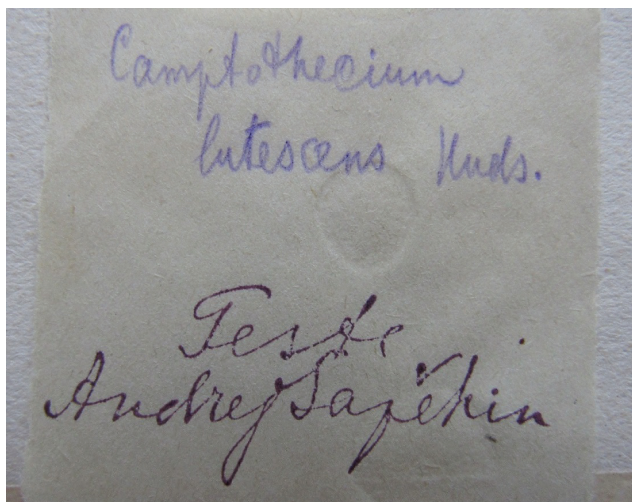 Camptothecium
lutescens Huds.
Teste
Andrej Sapěhin